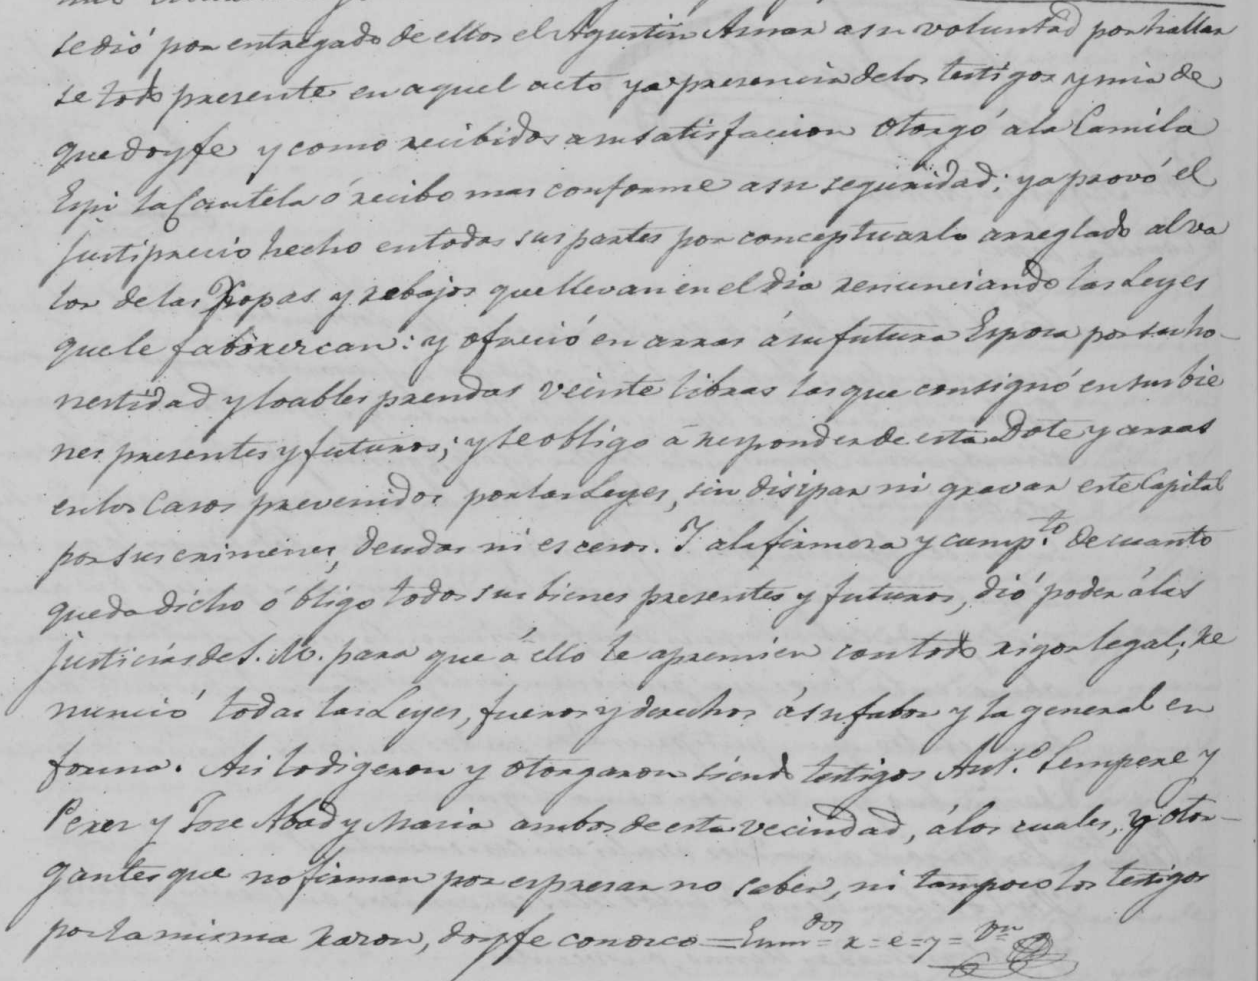 se dió por entregado de ellos el Agustin Aznar a su voluntad por hallar
se todo presente en aquel acto y a presencia de los testigos y mia de
que doy fe y como recibidos a su satisfaccion otorgó a la Camila
Espi la Cautela ó recibo mas conforme a su seguridad; y aprovó el
justiprecio hecho en todas sus partes por conceptuarlo arreglado al va
lor de las Ropas y rebajos que llevan en el dia renunciando las Leyes
que le faborezcan: y ofreció en arras á su futura Esposa por su ho-
nestidad y loables prendas veinte libras las que consignó en sus bie
nes presentes y futuros; y se obligo a responder de esta Dote y arras
en los Casos prevenidos por las Leyes, sin disipar ni gravar este Capital
por sus crimenes, deudas ni escesos. Y a la firmeza y cump.to de cuanto
queda dicho ó bligo todos sus bienes presentes y futuros, dió poder á las
justicias de S. M. para que á ello le apremien con todo rigor legal; re
nunció todas las Leyes, fueros y derechos á su fabor y la general en
forma. Asi lo digeron y otorgaron siendo testigos Ant.o Sempere y
Perez y Jose Abad y Maria ambos de esta vecindad, á los cuales, y otor-
gantes que no firman por espresar no saber, ni tampoco los testigos
por la misma razon, doy fe conozco = Enm.dos = x = e = y = V.n